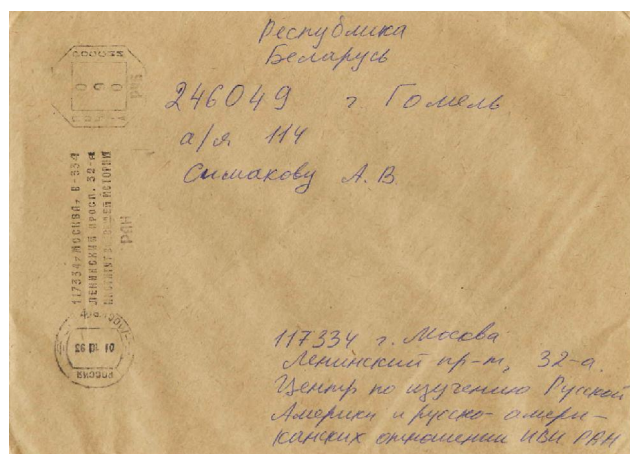 Республика
Беларусь
246049 г. Гомель
а/я. 114
Симакову А.В.
117334, МОСКВА, В-334
ЛЕНИНСКИЙ ПРОСП. 32-а
ИНСТИТУТ ВСЕОБ.ИСТОРИИ
РАН
РОССИЯ
01 10 93
117334 г. Мосова
Ленинский пр-т, 32-а.
Центр по изучению Русской
Америки и русско-амери-
канских отношений ИВИ РАН